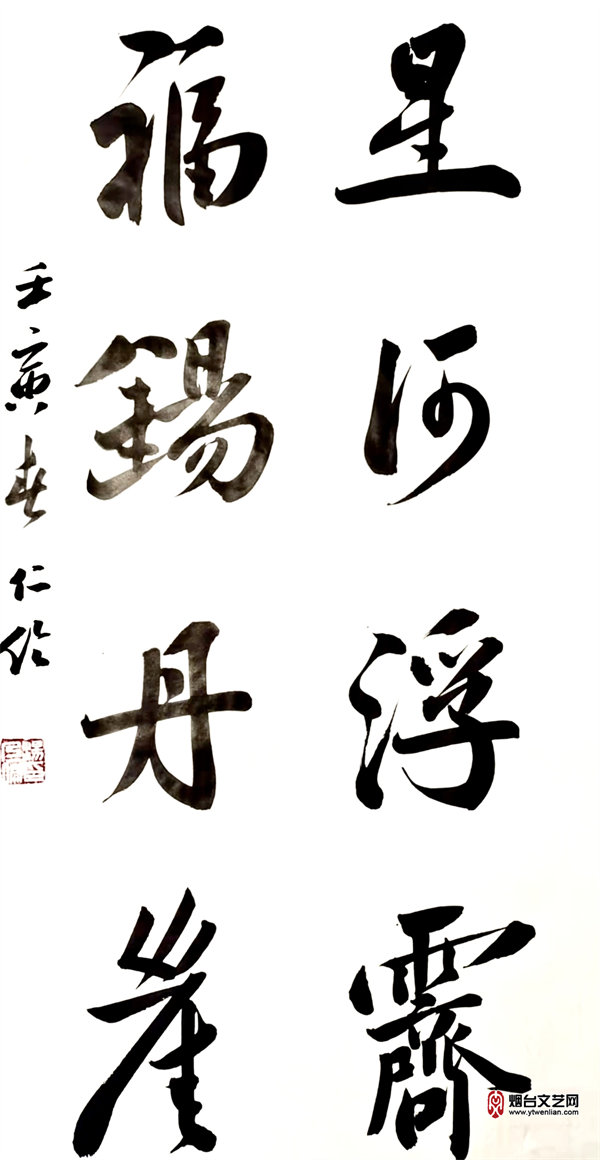 星河浮霽
福錫丹崖
壬寅春仁伶
烟台文艺网
www.ytwenlian.com